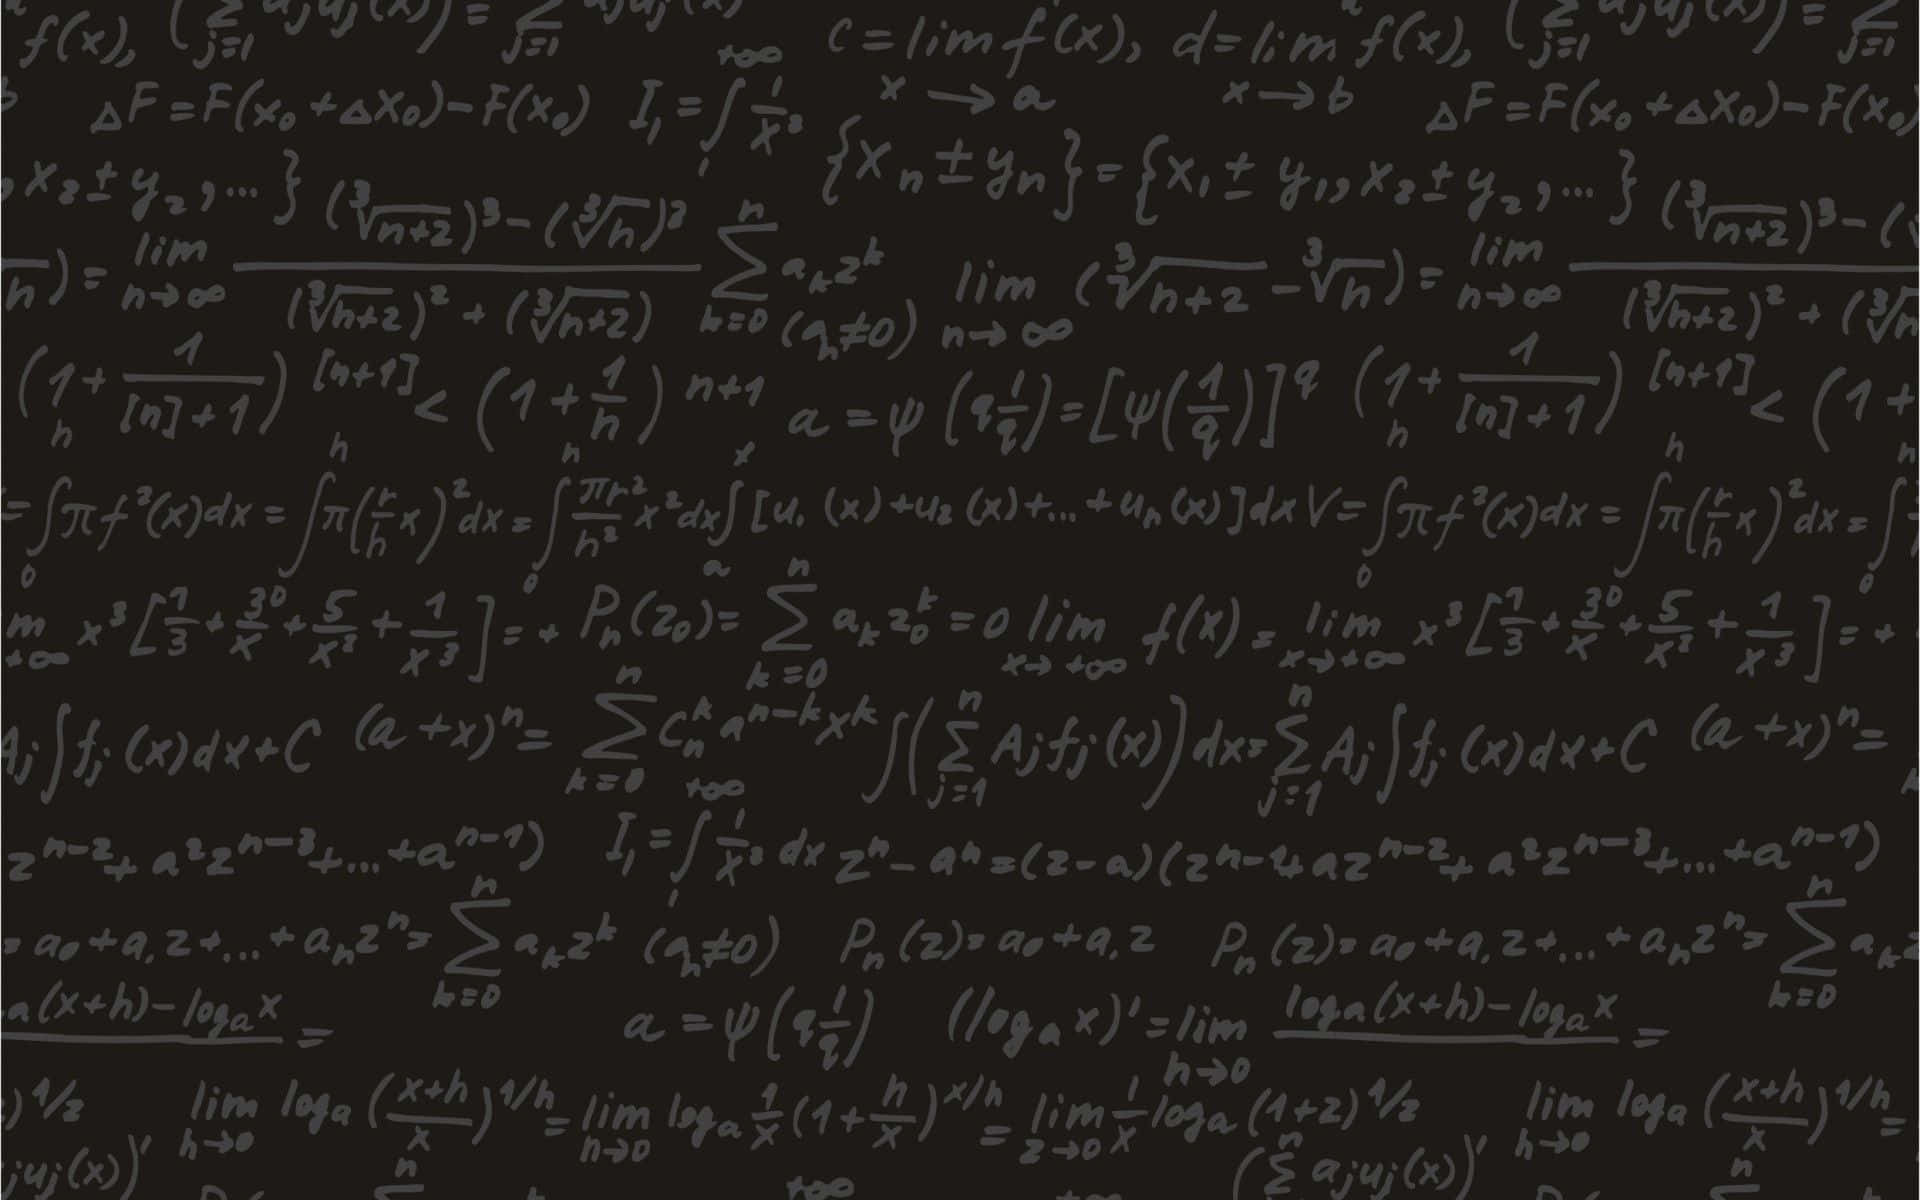 f(x), (∑ j=1 a_j u_j(x)) = ∑ j=1 a_j u_j(x) +∞ c = lim x→a f(x), d = lim x→b f(x), (∑ j=1 a_j u_j(x)) = ∑ j=1
b ΔF = F(x₀ + Δx₀) − F(x₀) I₁ = ∫₁ 1/x³ ΔF = F(x₀ + Δx₀) − F(x₀)
x₂ ± y₂, ... } {x_n ± y_n} = {x₁ ± y₁, x₂ ± y₂, ... }
h) = lim n→∞ ((∛(n+2))³ − (∛n)³) / ((∛(n+2))² + (∛(n+2)) ∑ k=0 n a_k z^k (a_n ≠ 0) lim n→∞ (∛(n+2) − ∛n) = lim n→∞ ((∛(n+2))³ − ( / ((∛(n+2))² + (∛n
(1 + 1/([n]+1))^[n+1] < (1 + 1/n)^n+1 a = ψ(q 1/q) = [ψ(1/q)]^q (1 + 1/([n]+1))^[n+1] < (1 +
= ∫₀^h π f²(x)dx = ∫₀^h π(r/h x)² dx = ∫₀^h πr²/h² x² dx ∫_a^x [u₁(x) + u₂(x) + ... + u_n(x)]dx V = ∫₀^h π f²(x)dx = ∫₀^h π(r/h x)² dx = ∫₀^h
m +∞ x³[1/3 + 30/x + 5/x² + 1/x³] = + P_n(z₀) = ∑ k=0 n a_k z₀^k = 0 lim x→+∞ f(x) = lim x→+∞ x³[1/3 + 30/x + 5/x² + 1/x³] = +
A_j ∫ f_j(x)dx + C (a + x)^n = ∑ k=0 n C_n^k a^n−k x^k ∫(∑ j=1 n A_j f_j(x))dx = ∑ j=1 n A_j ∫ f_j(x)dx + C (a + x)^n =
z^n−2 + a²z^n−3 + ... + a^n−1) I₁ = ∫₁^+∞ 1/x³ dx z^n − a^n = (z − a)(z^n−1 + az^n−2 + a²z^n−3 + ... + a^n−1)
= a₀ + a₁z + ... + a_n z^n = ∑ k=0 n a_k z^k (a_n ≠ 0) P_n(z) = a₀ + a₁z P_n(z) = a₀ + a₁z + ... + a_n z^n = ∑ k=0 n a_k z
a(x+h) − log_a x = a = ψ(q 1/q) (log_a x)' = lim h→0 (log_a(x+h) − log_a x) / =
)^1/z lim h→0 log_a((x+h)/x)^1/h = lim n→0 log_a 1/x (1 + h/x)^x/h = lim z→0 1/x log_a(1+z)^1/z lim h→0 log_a((x+h)/x)^1/h =
j u_j(x))' n +∞ (∑ n a_j u_j(x))' n